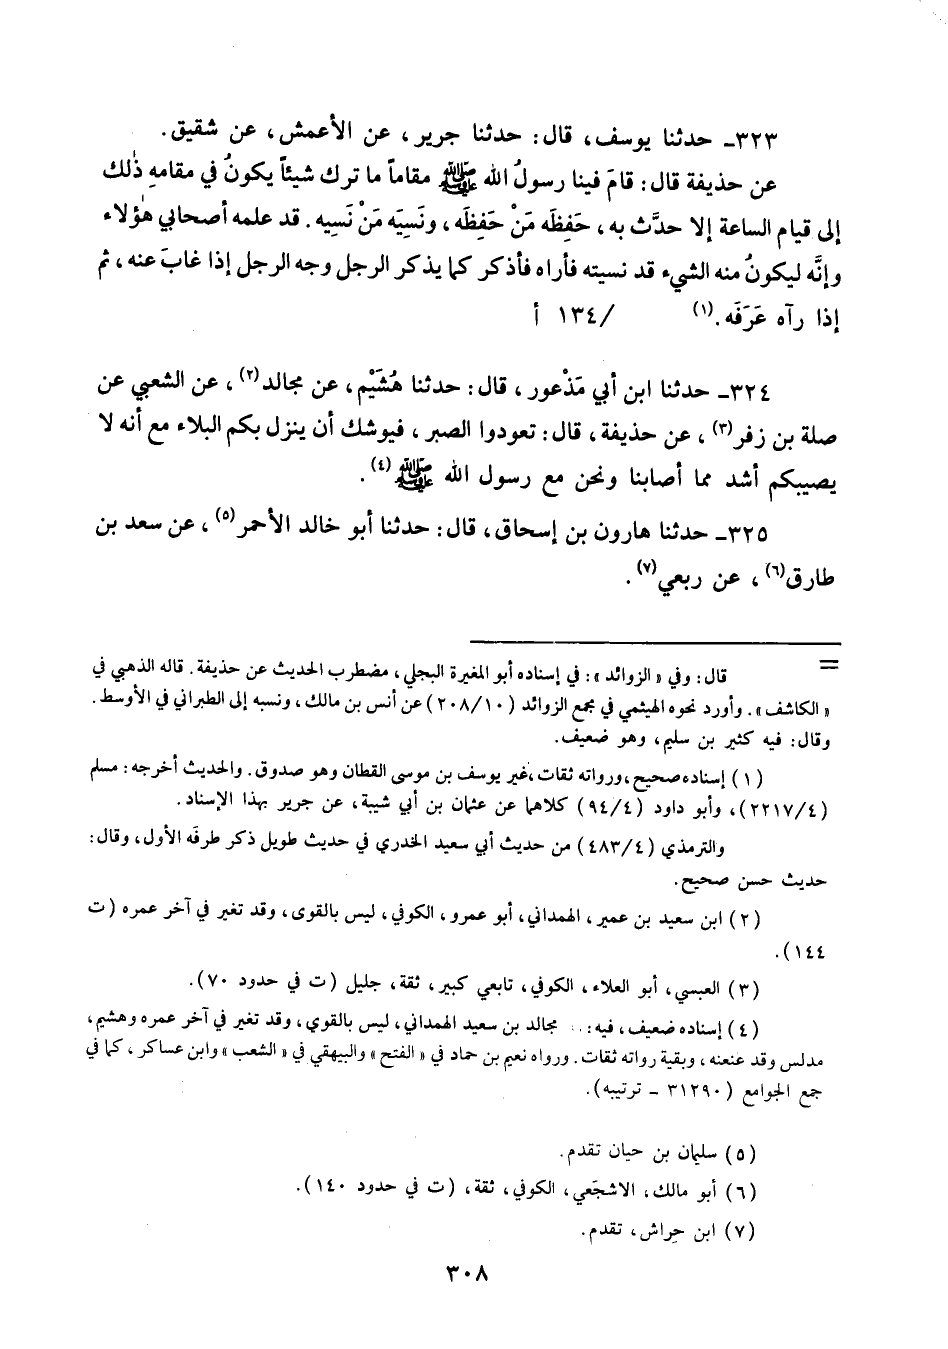 ٣٢٣ـ حدثنا يوسف، قال: حدثنا جرير، عن الأعمش، عن شقيق.
عن حذيفة قال: قامَ فينا رسولُ الله ﷺ مقاماً ما ترك شيئاً يكونُ في مقامهِ ذٰلك
إلى قيام الساعة إلا حدَّث به، حَفِظَه مَنْ حَفِظَه، ونَسِيَه مَنْ نَسِيه. قد علمه أصحابي هٰؤلاء
وإنَّه ليكونُ منه الشيء قد نسيته فأراه فأذكر كما يذكر الرجل وجه الرجل إذا غابَ عنه، ثم
إذا رآه عَرَفَه.(١) /١٣٤ أ
٣٢٤ـ حدثنا ابن أبي مَذْعور، قال: حدثنا هُشَيْم، عن مجالد(٢)، عن الشعبي عن
صلة بن زفر(٣)، عن حذيفة، قال: تعودوا الصبر، فيوشك أن ينزل بكم البلاء مع أنه لا
يصيبكم أشد مما أصابنا ونحن مع رسول الله ﷺ(٤).
٣٢٥ـ حدثنا هارون بن إسحاق، قال: حدثنا أبو خالد الأحمر(٥)، عن سعد بن
طارق(٦)، عن ربعي(٧).
= قال: وفي «الزوائد»: في إسناده أبو المغيرة البجلي، مضطرب الحديث عن حذيفة. قاله الذهبي في
«الكاشف». وأورد نحوه الهيثمي في مجمع الزوائد (٢٠٨/١٠) عن أنس بن مالك، ونسبه إلى الطبراني في الأوسط.
وقال: فيه كثير بن سليم، وهو ضعيف.
(١) إسناده صحيح، ورواته ثقات، غير يوسف بن موسى القطان وهو صدوق. والحديث أخرجه: مسلم
(٢٢١٧/٤)، وأبو داود (٩٤/٤) كلاهما عن عثمان بن أبي شيبة، عن جرير بهذا الإسناد.
والترمذي (٤٨٣/٤) من حديث أبي سعيد الخدري في حديث طويل ذكر طرفَه الأول، وقال:
حديث حسن صحيح.
(٢) ابن سعيد بن عمير، الهمداني، أبو عمرو، الكوفي، ليس بالقوى، وقد تغير في آخر عمره (ت
١٤٤).
(٣) العبسي، أبو العلاء، الكوفي، تابعي كبير، ثقة، جليل (ت في حدود ٧٠).
(٤) إسناده ضعيف، فيه: مجالد بن سعيد الهمداني، ليس بالقوي، وقد تغير في آخر عمره وهشيم،
مدلس وقد عنعنه، وبقية رواته ثقات. ورواه نعيم بن حماد في «الفتح» والبيهقي في «الشعب» وابن عساكر، كما في
جمع الجوامع (٣١٢٩٠ ـ ترتيبه).
(٥) سليمان بن حيان تقدم.
(٦) أبو مالك، الاشجَعي، الكوفي، ثقة، (ت في حدود ١٤٠).
(٧) ابن حِراش، تقدم.
٣٠٨